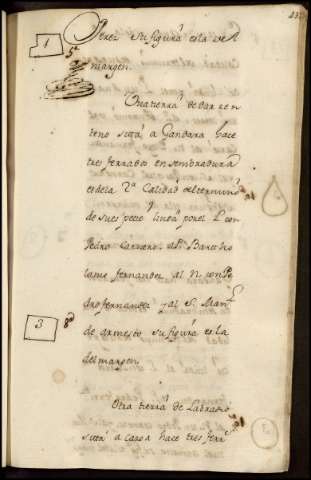 Perez su figura es la del
margen.
Otra tierra de dar cen
teno sita a Gandara hace
tres ferrados en sembradura
es de la 2ª Calidad del termino
de su especie linda por el L. con
Pedro Carnero al P. Bartholo
lame fernandez al N. con Pe
dro fernandez y al S. Manl.
de armesto su figura es la
del margen.
Otra tierra de Labradio
sita a carva hace tres ferrs
1
5ª
3
8ª